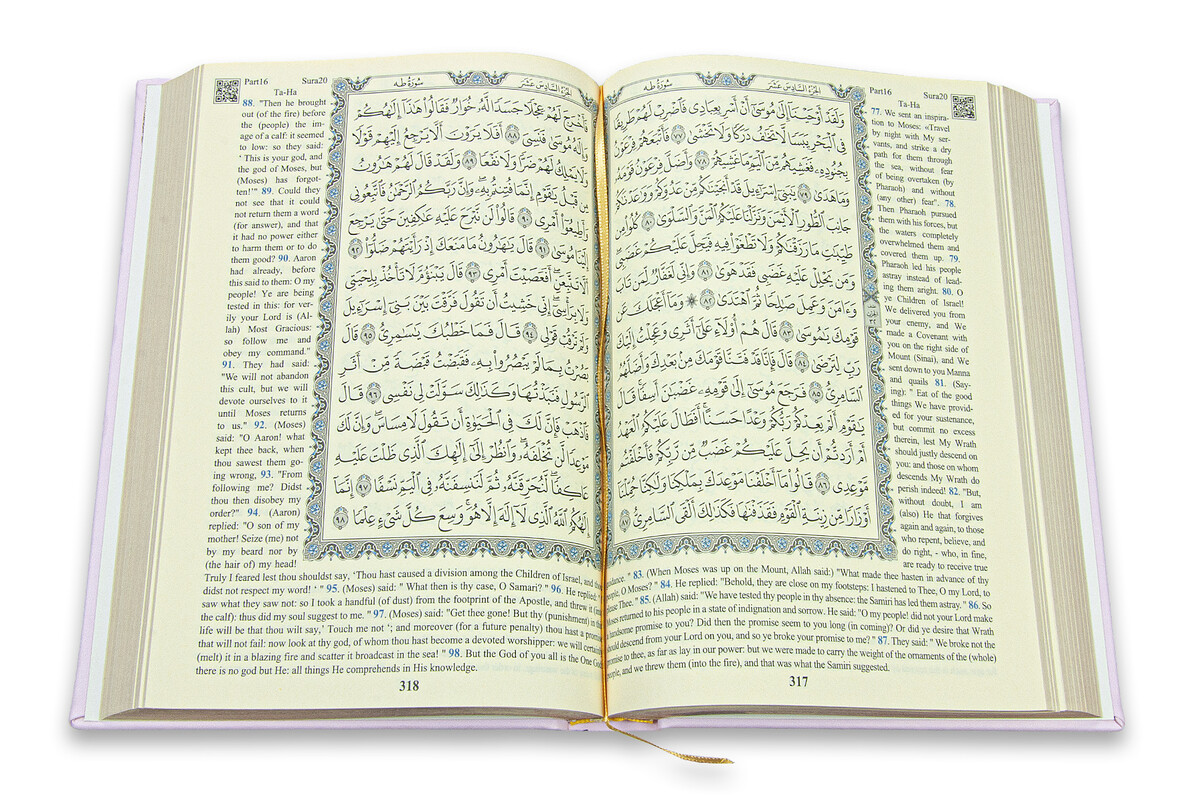 Part16
Sura20
Ta-Ha
سُورَةُ طه
الجُزْءُ السَّادِسَ عَشَرَ
وَلَقَدْ أَوْحَيْنَآ إِلَىٰ مُوسَىٰٓ أَنْ أَسْرِ بِعِبَادِى فَٱضْرِبْ لَهُمْ طَرِيقًا
فِى ٱلْبَحْرِ يَبَسًا لَّا تَخَٰفُ دَرَكًا وَلَا تَخْشَىٰ ٧٧ فَأَتْبَعَهُمْ فِرْعَوْنُ
بِجُنُودِهِۦ فَغَشِيَهُم مِّنَ ٱلْيَمِّ مَا غَشِيَهُمْ ٧٨ وَأَضَلَّ فِرْعَوْنُ قَوْمَهُۥ
وَمَا هَدَىٰ ٧٩ يَٰبَنِىٓ إِسْرَٰٓءِيلَ قَدْ أَنجَيْنَٰكُم مِّنْ عَدُوِّكُمْ وَوَٰعَدْنَٰكُمْ
جَانِبَ ٱلطُّورِ ٱلْأَيْمَنَ وَنَزَّلْنَا عَلَيْكُمُ ٱلْمَنَّ وَٱلسَّلْوَىٰ ٨٠ كُلُوا۟ مِن
طَيِّبَٰتِ مَا رَزَقْنَٰكُمْ وَلَا تَطْغَوْا۟ فِيهِ فَيَحِلَّ عَلَيْكُمْ غَضَبِى
وَمَن يَحْلِلْ عَلَيْهِ غَضَبِى فَقَدْ هَوَىٰ ٨١ وَإِنِّى لَغَفَّارٌ لِّمَن تَابَ
وَءَامَنَ وَعَمِلَ صَٰلِحًا ثُمَّ ٱهْتَدَىٰ ٨٢ ۞ وَمَآ أَعْجَلَكَ عَن
قَوْمِكَ يَٰمُوسَىٰ ٨٣ قَالَ هُمْ أُو۟لَآءِ عَلَىٰٓ أَثَرِى وَعَجِلْتُ إِلَيْكَ
رَبِّ لِتَرْضَىٰ ٨٤ قَالَ فَإِنَّا قَدْ فَتَنَّا قَوْمَكَ مِنۢ بَعْدِكَ وَأَضَلَّهُمُ
ٱلسَّامِرِىُّ ٨٥ فَرَجَعَ مُوسَىٰٓ إِلَىٰ قَوْمِهِۦ غَضْبَٰنَ أَسِفًا قَالَ
يَٰقَوْمِ أَلَمْ يَعِدْكُمْ رَبُّكُمْ وَعْدًا حَسَنًا أَفَطَالَ عَلَيْكُمُ ٱلْعَهْدُ
أَمْ أَرَدتُّمْ أَن يَحِلَّ عَلَيْكُمْ غَضَبٌ مِّن رَّبِّكُمْ فَأَخْلَفْتُم
مَّوْعِدِى ٨٦ قَالُوا۟ مَآ أَخْلَفْنَا مَوْعِدَكَ بِمَلْكِنَا وَلَٰكِنَّا حُمِّلْنَآ
أَوْزَارًا مِّن زِينَةِ ٱلْقَوْمِ فَقَذَفْنَٰهَا فَكَذَٰلِكَ أَلْقَى ٱلسَّامِرِىُّ ٨٧
77. We sent an inspira-
tion to Moses: «Travel
by night with My ser-
vants, and strike a dry
path for them through
the sea, without fear
of being overtaken (by
Pharaoh) and without
(any other) fear". 78.
Then Pharaoh pursued
them with his forces, but
the waters completely
overwhelmed them and
covered them up. 79.
Pharaoh led his people
astray instead of lead-
ing them aright. 80. O
ye Children of Israel!
We delivered you from
your enemy, and We
made a Covenant with
you on the right side of
Mount (Sinai), and We
sent down to you Manna
and quails 81. (Say-
ing): " Eat of the good
things We have provid-
ed for your sustenance,
but commit no excess
therein, lest My Wrath
should justly descend on
you: and those on whom
descends My Wrath do
perish indeed! 82. "But,
without doubt, I am
(also) He that forgives
again and again, to those
who repent, believe, and
do right, - who, in fine,
are ready to receive true
guidance. " 83. (When Moses was up on the Mount, Allah said:) "What made thee hasten in advance of thy
people, O Moses? " 84. He replied: "Behold, they are close on my footsteps: I hastened to Thee, O my Lord, to
please Thee. " 85. (Allah) said: "We have tested thy people in thy absence: the Samiri has led them astray." 86. So
Moses returned to his people in a state of indignation and sorrow. He said: "O my people! did not your Lord make
a handsome promise to you? Did then the promise seem to you long (in coming)? Or did ye desire that Wrath
should descend from your Lord on you, and so ye broke your promise to me? " 87. They said: " We broke not the
promise to thee, as far as lay in our power: but we were made to carry the weight of the ornaments of the (whole)
people, and we threw them (into the fire), and that was what the Samiri suggested.
317
Part16
Sura20
Ta-Ha
سُورَةُ طه
الجُزْءُ السَّادِسَ عَشَرَ
فَأَخْرَجَ لَهُمْ عِجْلًا جَسَدًا لَّهُۥ خُوَارٌ فَقَالُوا۟ هَٰذَآ إِلَٰهُكُمْ
وَإِلَٰهُ مُوسَىٰ فَنَسِىَ ٨٨ أَفَلَا يَرَوْنَ أَلَّا يَرْجِعُ إِلَيْهِمْ قَوْلًا
وَلَا يَمْلِكُ لَهُمْ ضَرًّا وَلَا نَفْعًا ٨٩ وَلَقَدْ قَالَ لَهُمْ هَٰرُونُ
مِن قَبْلُ يَٰقَوْمِ إِنَّمَا فُتِنتُم بِهِۦ وَإِنَّ رَبَّكُمُ ٱلرَّحْمَٰنُ فَٱتَّبِعُونِى
وَأَطِيعُوٓا۟ أَمْرِى ٩٠ قَالُوا۟ لَن نَّبْرَحَ عَلَيْهِ عَٰكِفِينَ حَتَّىٰ يَرْجِعَ
إِلَيْنَا مُوسَىٰ ٩١ قَالَ يَٰهَٰرُونُ مَا مَنَعَكَ إِذْ رَأَيْتَهُمْ ضَلُّوٓا۟ ٩٢
أَلَّا تَتَّبِعَنِ أَفَعَصَيْتَ أَمْرِى ٩٣ قَالَ يَبْنَؤُمَّ لَا تَأْخُذْ بِلِحْيَتِى
وَلَا بِرَأْسِىٓ إِنِّى خَشِيتُ أَن تَقُولَ فَرَّقْتَ بَيْنَ بَنِىٓ إِسْرَٰٓءِيلَ
وَلَمْ تَرْقُبْ قَوْلِى ٩٤ قَالَ فَمَا خَطْبُكَ يَٰسَٰمِرِىُّ ٩٥ قَالَ
بَصُرْتُ بِمَا لَمْ يَبْصُرُوا۟ بِهِۦ فَقَبَضْتُ قَبْضَةً مِّنْ أَثَرِ
ٱلرَّسُولِ فَنَبَذْتُهَا وَكَذَٰلِكَ سَوَّلَتْ لِى نَفْسِى ٩٦ قَالَ
فَٱذْهَبْ فَإِنَّ لَكَ فِى ٱلْحَيَوٰةِ أَن تَقُولَ لَا مِسَاسَ وَإِنَّ لَكَ
مَوْعِدًا لَّن تُخْلَفَهُۥ وَٱنظُرْ إِلَىٰٓ إِلَٰهِكَ ٱلَّذِى ظَلْتَ عَلَيْهِ
عَاكِفًا لَّنُحَرِّقَنَّهُۥ ثُمَّ لَنَنسِفَنَّهُۥ فِى ٱلْيَمِّ نَسْفًا ٩٧ إِنَّمَآ
إِلَٰهُكُمُ ٱللَّهُ ٱلَّذِى لَآ إِلَٰهَ إِلَّا هُوَ وَسِعَ كُلَّ شَىْءٍ عِلْمًا ٩٨
88. "Then he brought
out (of the fire) before
the (people) the im-
age of a calf: it seemed
to low: so they said:
‘ This is your god, and
the god of Moses, but
(Moses) has forgot-
ten!'" 89. Could they
not see that it could
not return them a word
(for answer), and that
it had no power either
to harm them or to do
them good? 90. Aaron
had already, before
this said to them: O my
people! Ye are being
tested in this: for ver-
ily your Lord is (Al-
lah) Most Gracious:
so follow me and
obey my command."
91. They had said:
"We will not abandon
this cult, but we will
devote ourselves to it
until Moses returns
to us." 92. (Moses)
said: "O Aaron! what
kept thee back, when
thou sawest them go-
ing wrong, 93. "From
following me? Didst
thou then disobey my
order?" 94. (Aaron)
replied: "O son of my
mother! Seize (me) not
by my beard nor by
(the hair of) my head!
Truly I feared lest thou shouldst say, ‘Thou hast caused a division among the Children of Israel, and thou
didst not respect my word! ‘ " 95. (Moses) said: " What then is thy case, O Samari? " 96. He replied: "I
saw what they saw not: so I took a handful (of dust) from the footprint of the Apostle, and threw it (into
the calf): thus did my soul suggest to me. " 97. (Moses) said: "Get thee gone! But thy (punishment) in this
life will be that thou wilt say,’ Touch me not ‘; and moreover (for a future penalty) thou hast a promise
that will not fail: now look at thy god, of whom thou hast become a devoted worshipper: we will certainly
(melt) it in a blazing fire and scatter it broadcast in the sea! " 98. But the God of you all is the One God
there is no god but He: all things He comprehends in His knowledge.
318